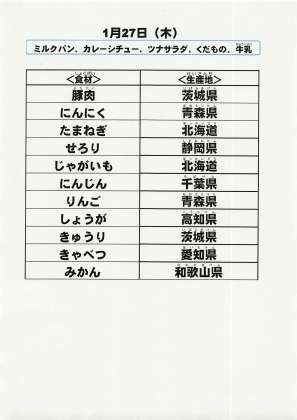 1月27日（木）
ミルクパン、カレーシチュー、ツナサラダ、くだもの、牛乳
＜食材＞ ＜生産地＞
豚肉 茨城県
にんにく 青森県
たまねぎ 北海道
せろり 静岡県
じゃがいも 北海道
にんじん 千葉県
りんご 青森県
しょうが 高知県
きゅうり 茨城県
きゃべつ 愛知県
みかん 和歌山県